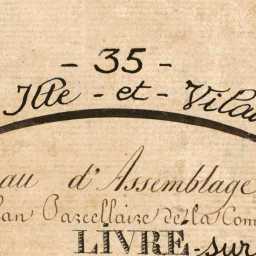 - 35 -
Ille - et - Vilai
au d'Assemblage
lan Parcellaire de la Com
LIVRE-sur